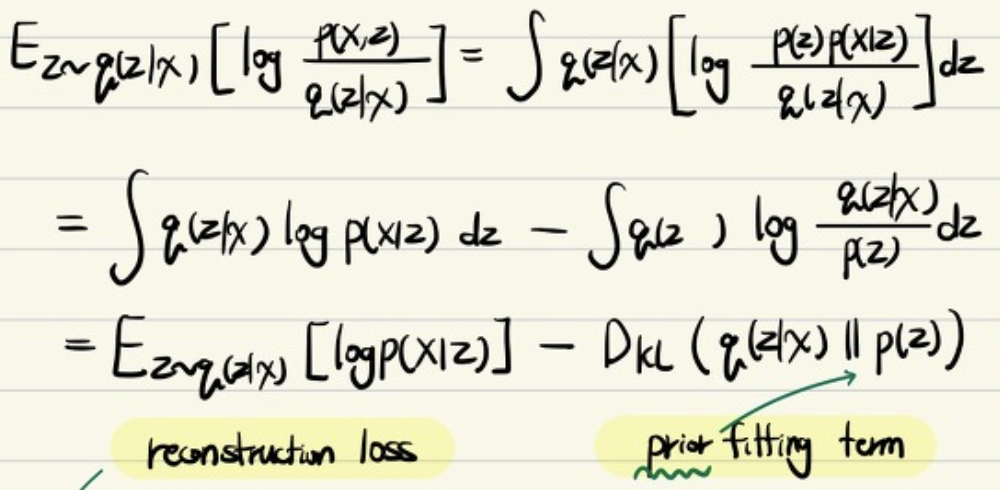 E_{z~q(z|x)} [ log p(x,z) / q(z|x) ] = ∫ q(z|x) [ log p(z)p(x|z) / q(z|x) ] dz
= ∫ q(z|x) log p(x|z) dz − ∫ q(z ) log q(z|x) / p(z) dz
= E_{z~q(z|x)} [log p(x|z)] − D_{KL} ( q(z|x) || p(z) )
reconstruction loss prior fitting term